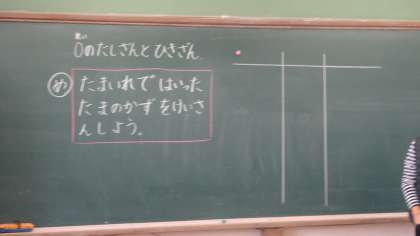 0のたしざんとひきざん
め
たまいれで はいった
たまのかずをけいさ
んしよう。